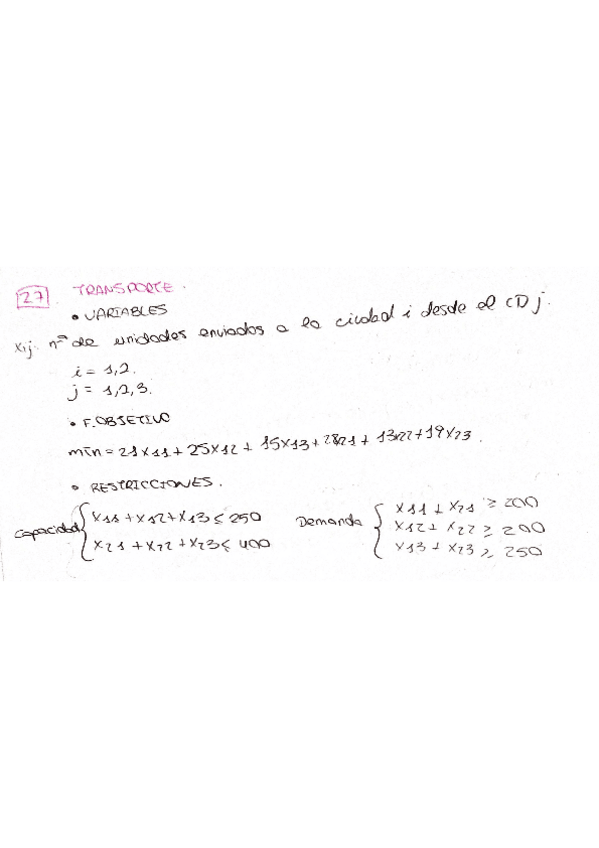 27 TRANSPORTE.
• VARIABLES
Xij. nº de unidades enviados a la ciudad i desde el CD j.
i = 1,2.
j = 1,2,3.
• F.OBJETIVO
min = 21X11 + 25X12 + 15X13 + 28X21 + 13X22 + 19X23.
• RESTRICCIONES.
Capacidad { X11 + X12 + X13 ≤ 250
X21 + X22 + X23 ≤ 400
Demanda { X11 + X21 ≥ 200
X12 + X22 ≥ 200
X13 + X23 ≥ 250